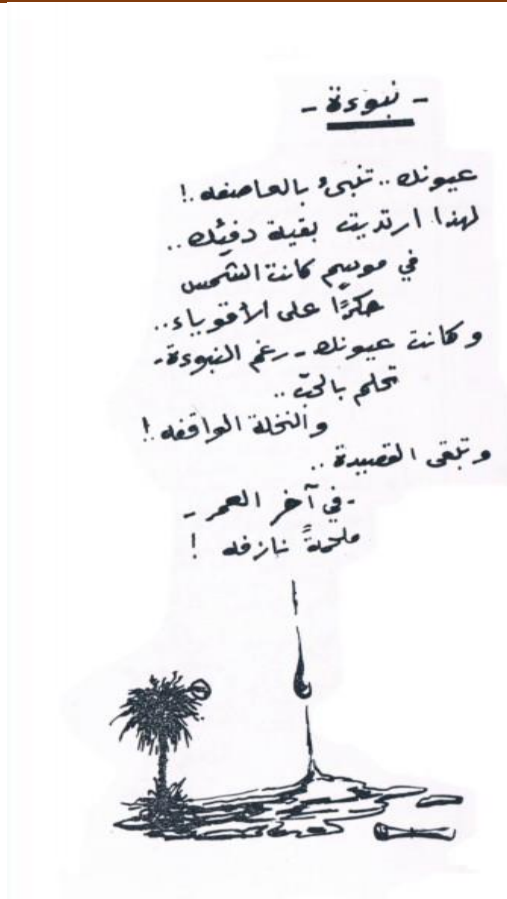 - نبوءة -
عيونك .. تنبىء بالعاصفه .!
لهذا ارتديت بقية دفئك ..
في موسمٍ كانت الشمس
حكرًا على الأقوياء ..
وكانت عيونك - رغم النبوءة -
تحلم بالحبّ ..
والنخلة الواقفه !
وتبقى القصيدة ..
- في آخر العمر -
ملحمةً نازفه !